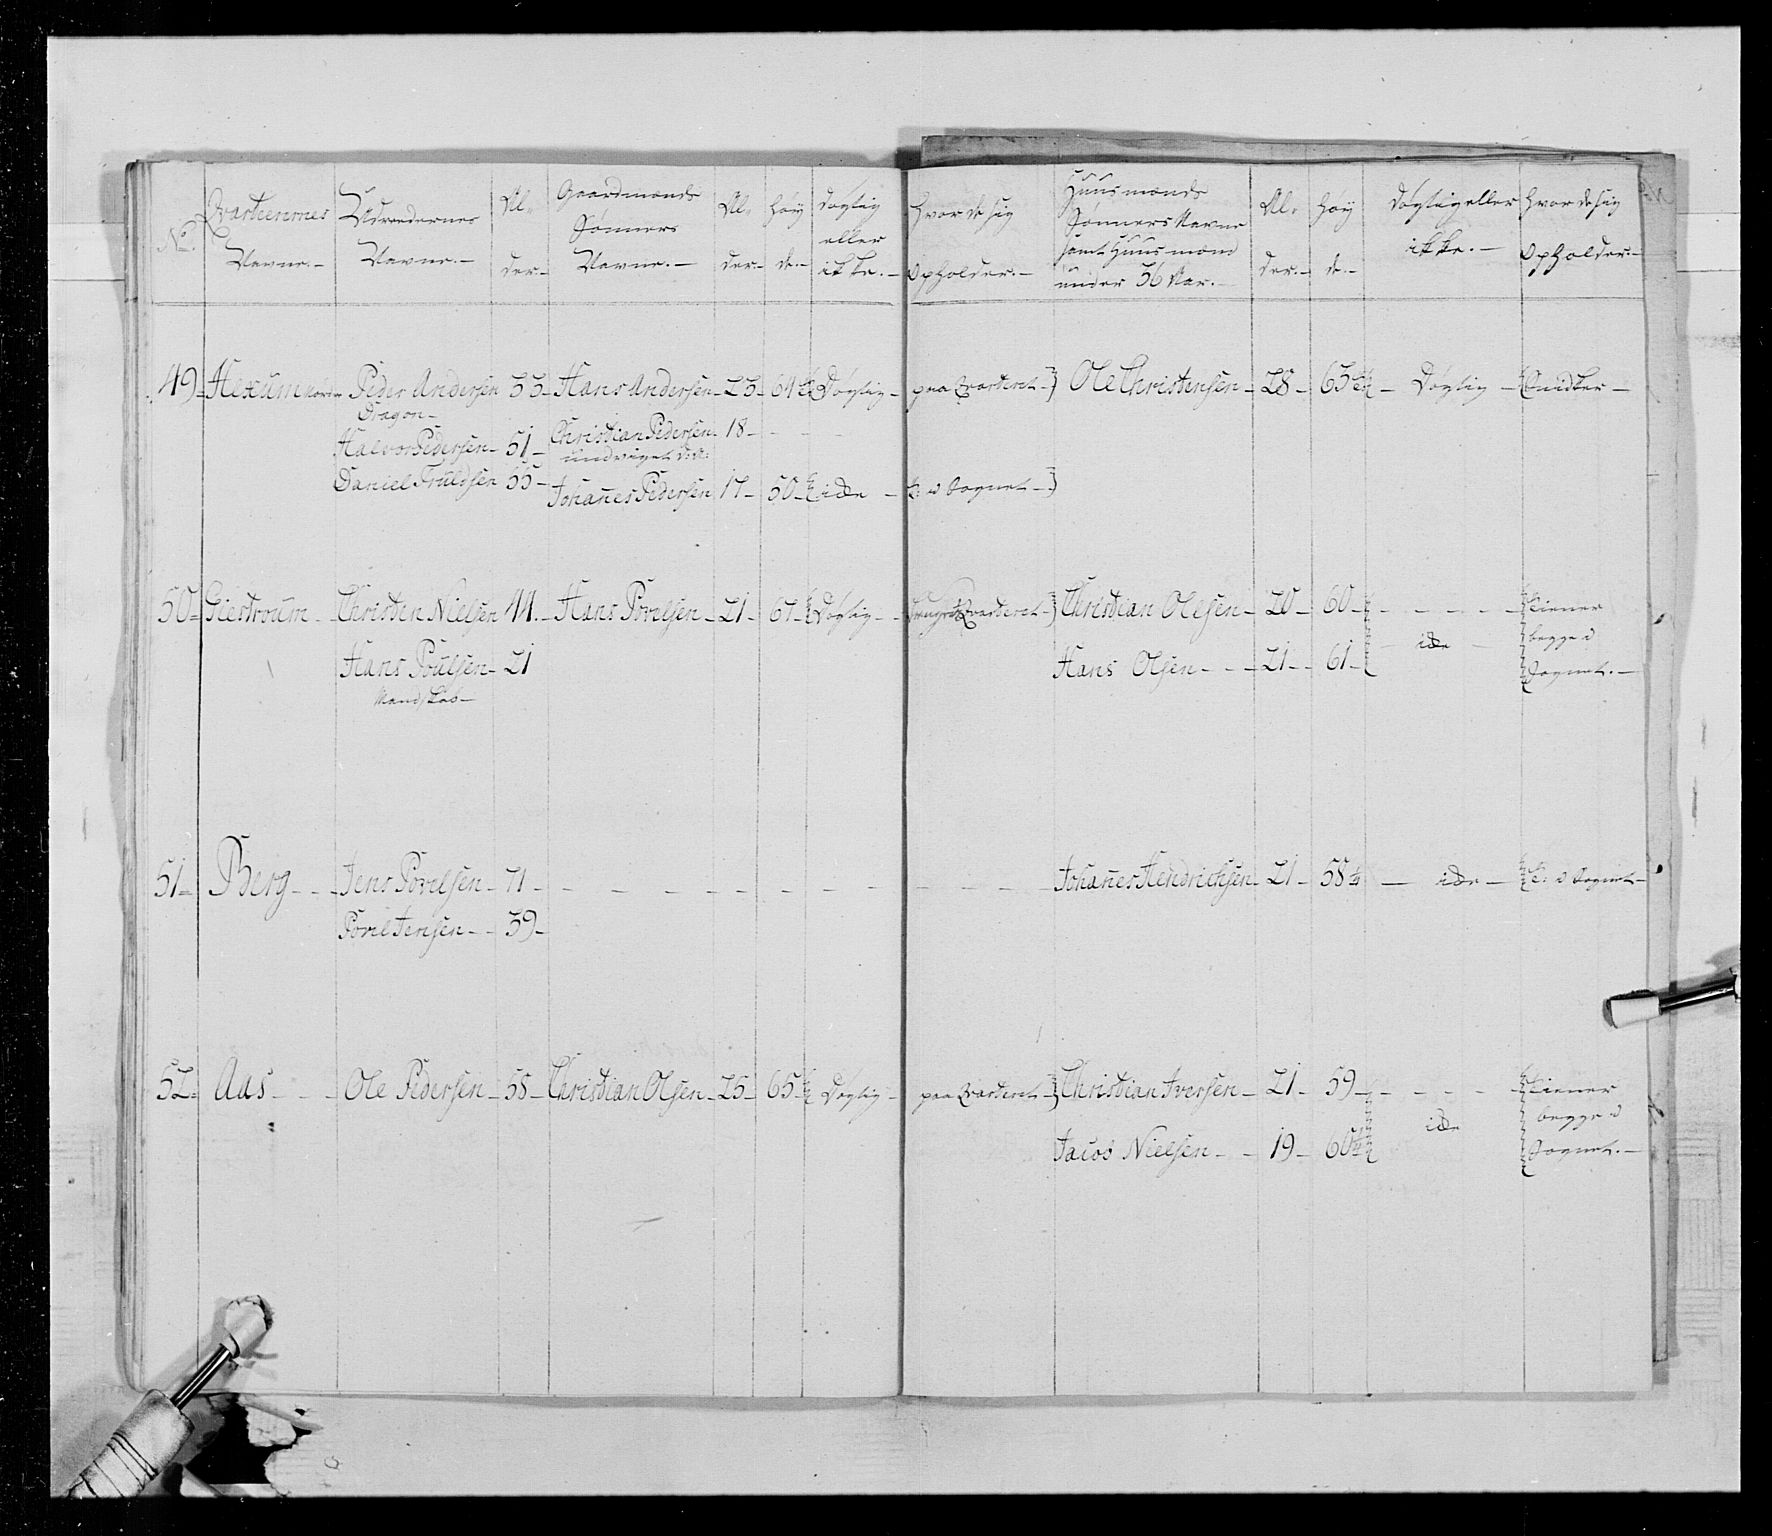 No. Qvarteernes Navne.— Udreedernes Navne.— Al-der— Gaardmænds Sønners Navne.— Al-der— Høy-de.— Døgtig eller ikke.— Hvor de sig Opholder.— Huusmænds Sønners Navne samt Huusmænd under 56 Aar.— Al-der.— Høy-de.— Døgtig eller ikke.— Hvor de sig Opholder.—
49= Hexum Peder Andersen 53— Hans Andersen— 23— 64 Døgtig— paa Qvarteret— Ole Christensen— 28— 63 Døgtig— Snidker—
Dragon—
Halvor Pedersen— 51— Christian Pedersen— 18—
undviget
Daniel Truldsen 55— Johanes Pedersen 17— 50— icke— i Sognet—
50= Giestroum— Christen Nielsen 44.— Hans Povelsen— 21— 67— Døgtig— Qvarteret— Christian Olesen— 20— 60— Tiener
begge i
Hans Poulsen— 21 Hans Olsen— 21— 61— icke Sognet.—
Mandskab—
51= Berg— Jens Povelsen— 71— Johanes Hendrichsen— 21— 58 icke— i Sognet—
Povel Jensen— 39—
52= Aas— Ole Pedersen— 58— Christian Olsen— 25— 65— Døgtig— paa Qvarteret— Christian Iversen— 21— 59— Tiener
icke begge i
Jacob Nielsen— 19— 60 Sognet.—